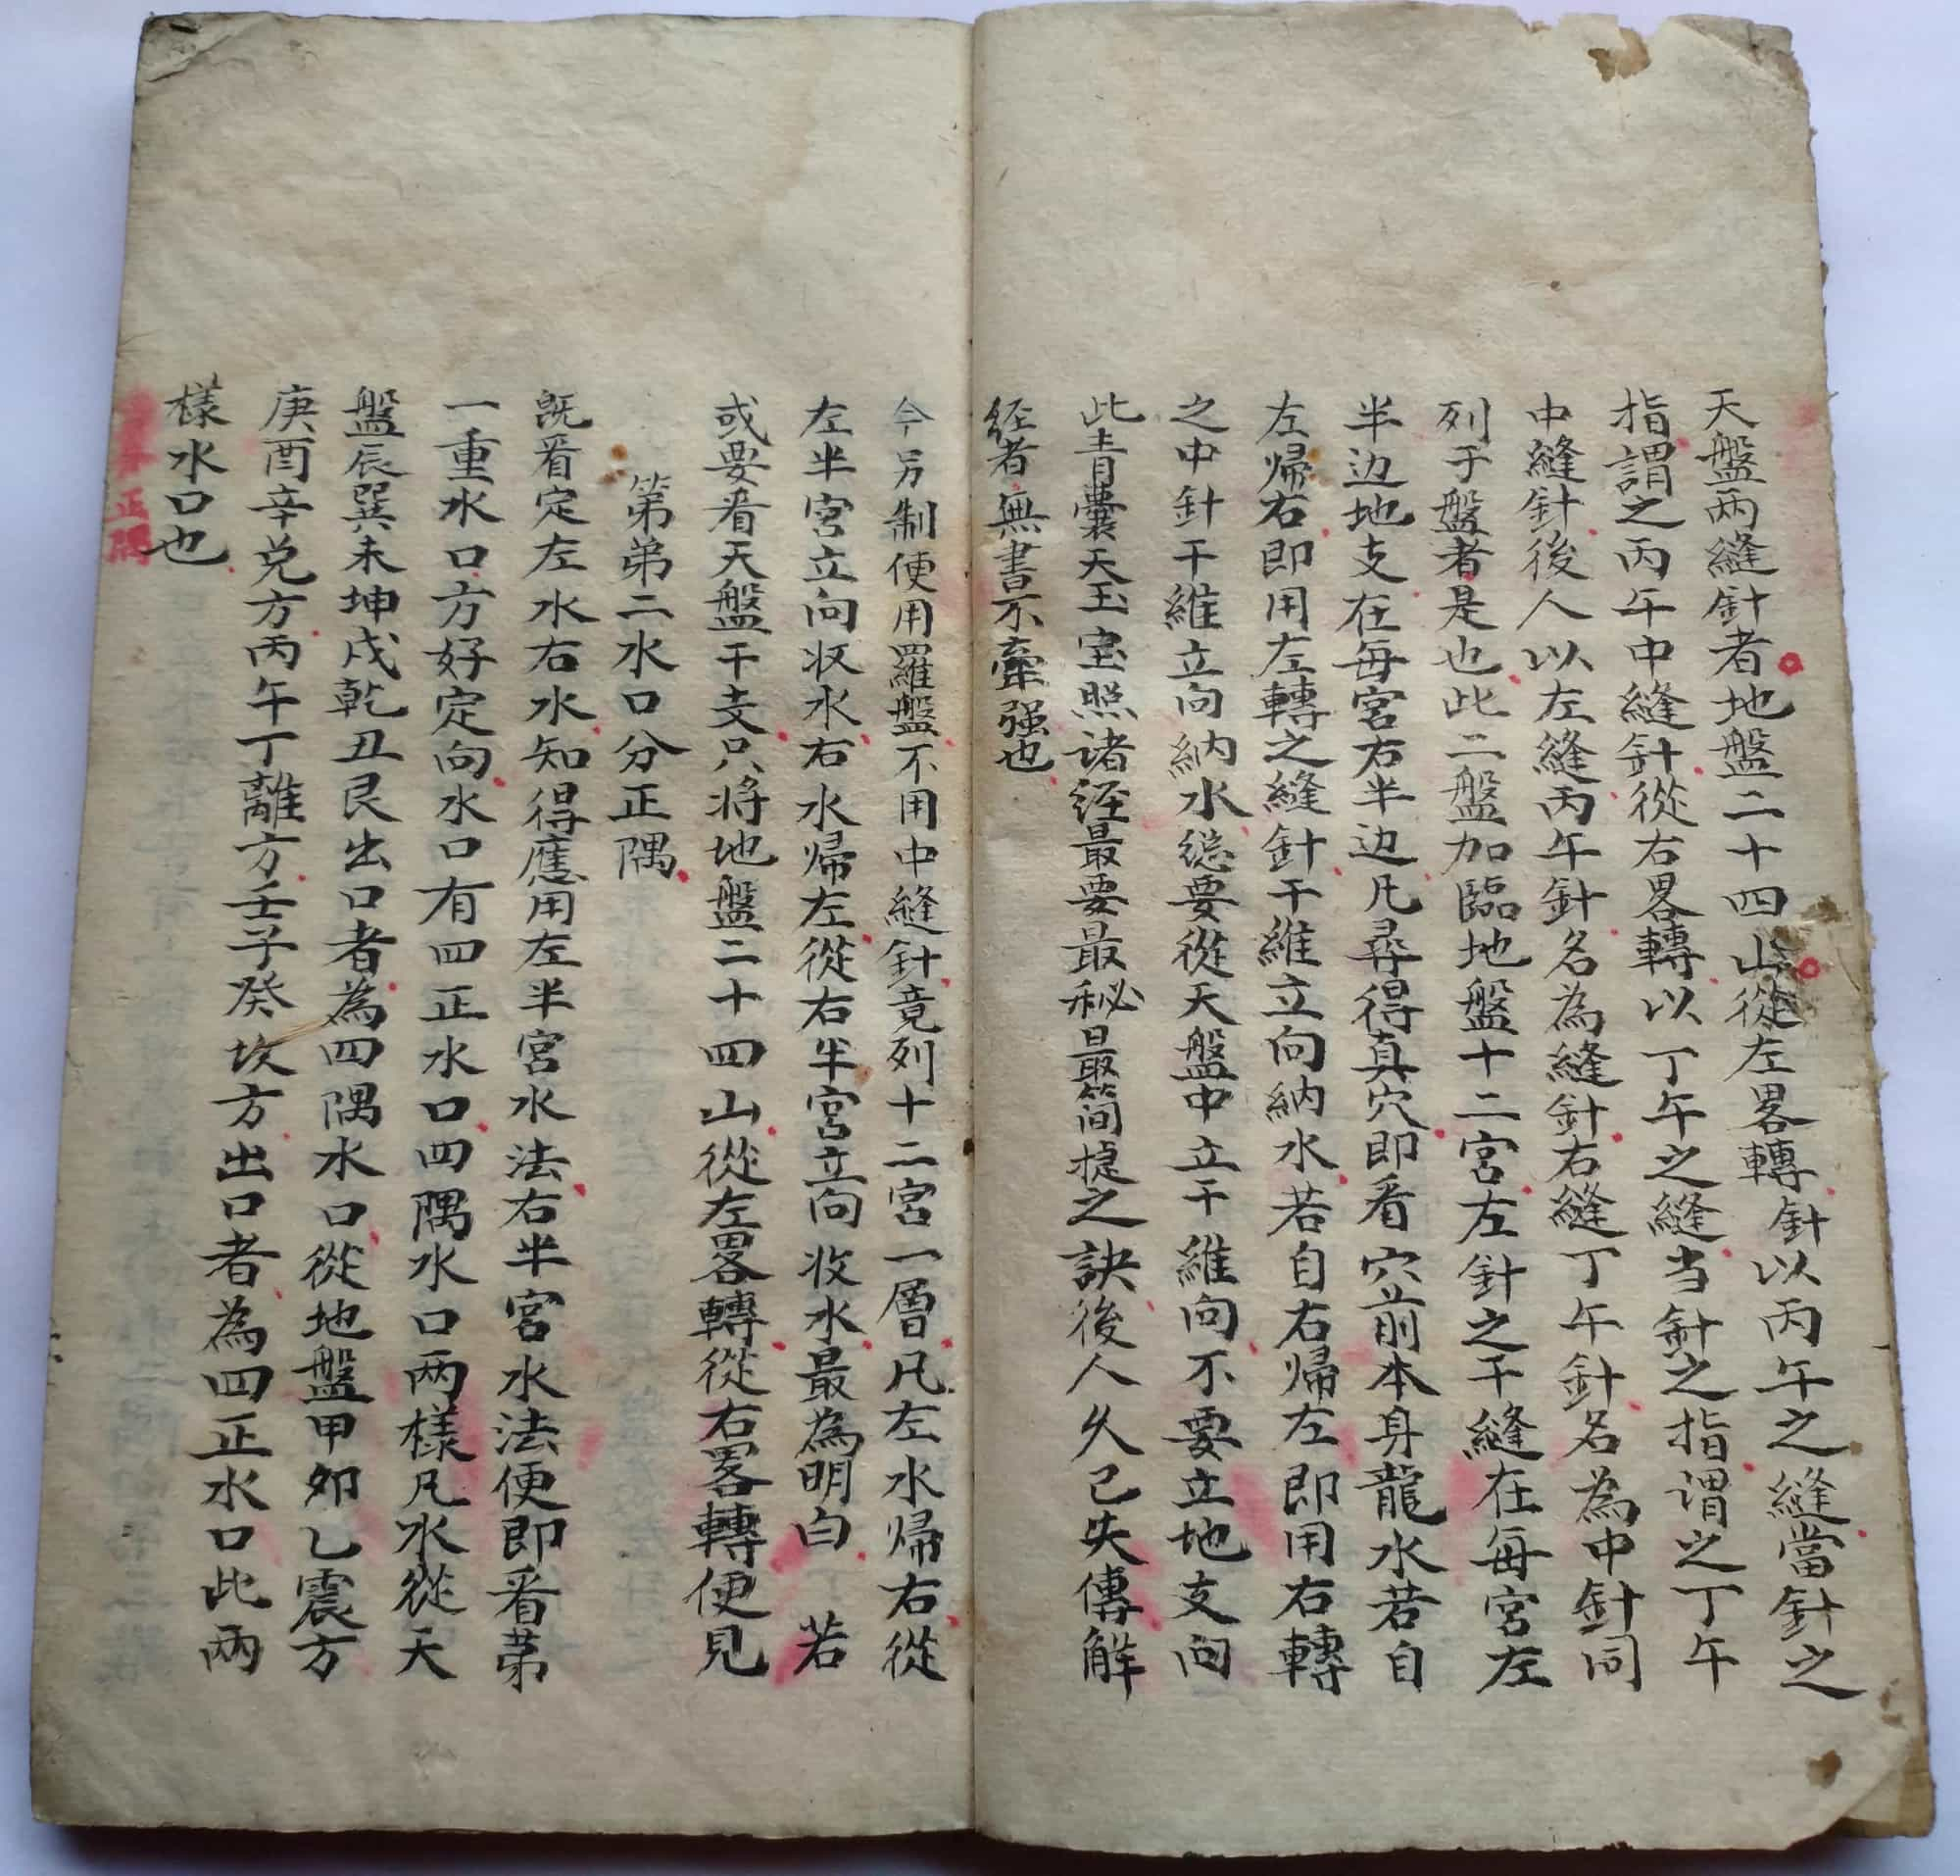 天盤兩縫針者地盤二十四山從左畧轉針以丙午之縫當針之
指謂之丙午中縫針從右畧轉以丁午之縫当針之指谓之丁午
中縫針後人以左縫丙午針名為縫針右縫丁午針名為中針同
列于盤者是也此二盤加臨地盤十二宮左針之干縫在每宮左
半边地支在每宮右半边凡尋得真穴即看穴前本身龍水若自
左歸右即用左轉之縫針干維立向納水若自右歸左即用右轉
之中針干維立向納水縂要從天盤中立干維向不要立地支向
此青囊天玉宝照诸経最要最秘最简捷之訣後人久已失傳解
経者無書不牽强也
今另制便用羅盤不用中縫針竟列十二宮一層凡左水帰右從
左半宮立向收水右水歸左從右半宮立向收水最為明白若
或要看天盤干支只将地盤二十四山從左畧轉從右畧轉便見
第弟二水口分正隅
既看定左水右水知得應用左半宮水法右半宮水法便即看苐
一重水口方好定向水口有四正水口四隅水口两樣凡水從天
盤辰巽未坤戌乾丑艮出口者為四隅水口從地盤甲夘乙震方
庚酉辛兑方丙午丁離方壬子癸坎方出口者為四正水口此两
樣水口也
正隅